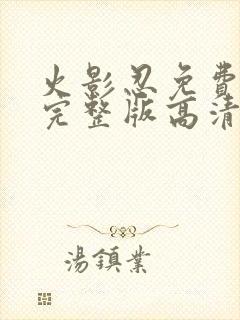 火影忍免費
完整版高清
湯鎮業